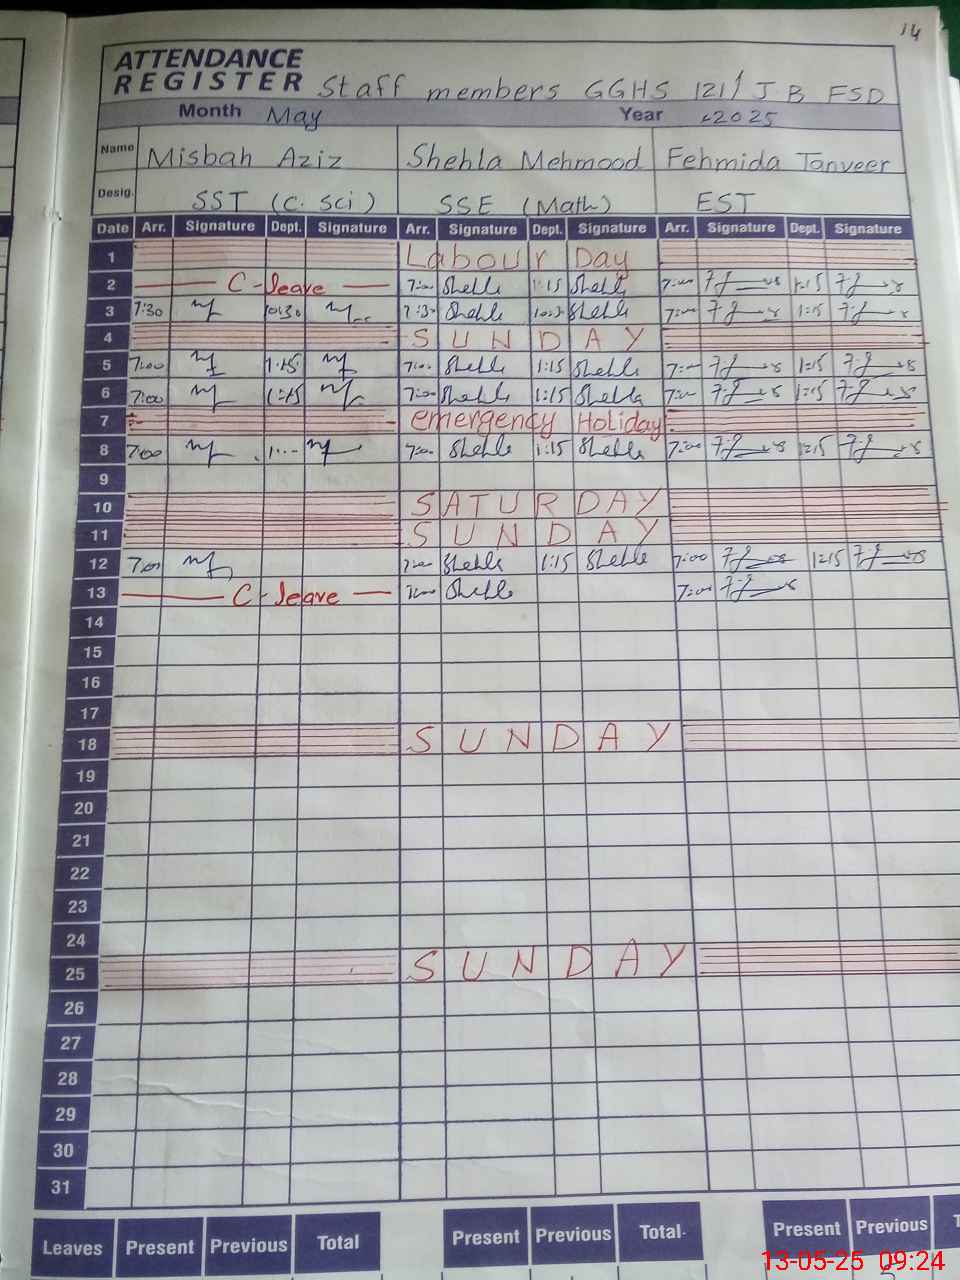 14
ATTENDANCE
REGISTER Staff members GGHS 121/ J B FSD
Month May Year 2025
Name Misbah Aziz Shehla Mehmood Fehmida Tanveer
Desig. SST (C. Sci) SSE (Math) EST
Date Arr. Signature Dept. Signature Arr. Signature Dept. Signature Arr. Signature Dept. Signature
1 Labour Day
2 C-leave 7:00 Shehla 1:15 Shehla 7:00 1:15
3 7:30 10:30 7:30 Shehla 10:30 Shehla 7:00 1:15
4 SUNDAY
5 7:00 1:15 7:00 Shehla 1:15 Shehla 7:00 1:15
6 7:00 1:15 7:00 Shehla 1:15 Shehla 7:00 12:15
7 emergency Holiday
8 7:00 7:00 Shehla 1:15 Shehla 7:00 12:15
9
10 SATURDAY
11 SUNDAY
12 7:00 7:00 Shehla 1:15 Shehla 7:00 1:15
13 C-leave 7:00 Shehla 7:00
14
15
16
17
18 SUNDAY
19
20
21
22
23
24
25 SUNDAY
26
27
28
29
30
31
Leaves Present Previous Total Present Previous Total Present Previous
13-05-25 09:24